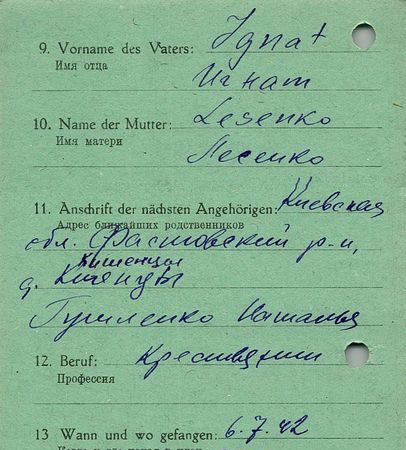 9. Vorname des Vaters: Ignat
Имя отца
Игнат
10. Name der Mutter: Lesenko
Имя матери
Лесенко
11. Anschrift der nächsten Angehörigen: Киевская
Адрес ближайших родственников
обл. Фастовский р-н,
Кишенцы
д.
Наталья
12. Beruf: Крестьянин
Профессия
13 Wann und wo gefangen: 6.7.42